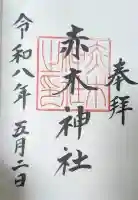 奉拝
赤木神社
令和八年五月二日